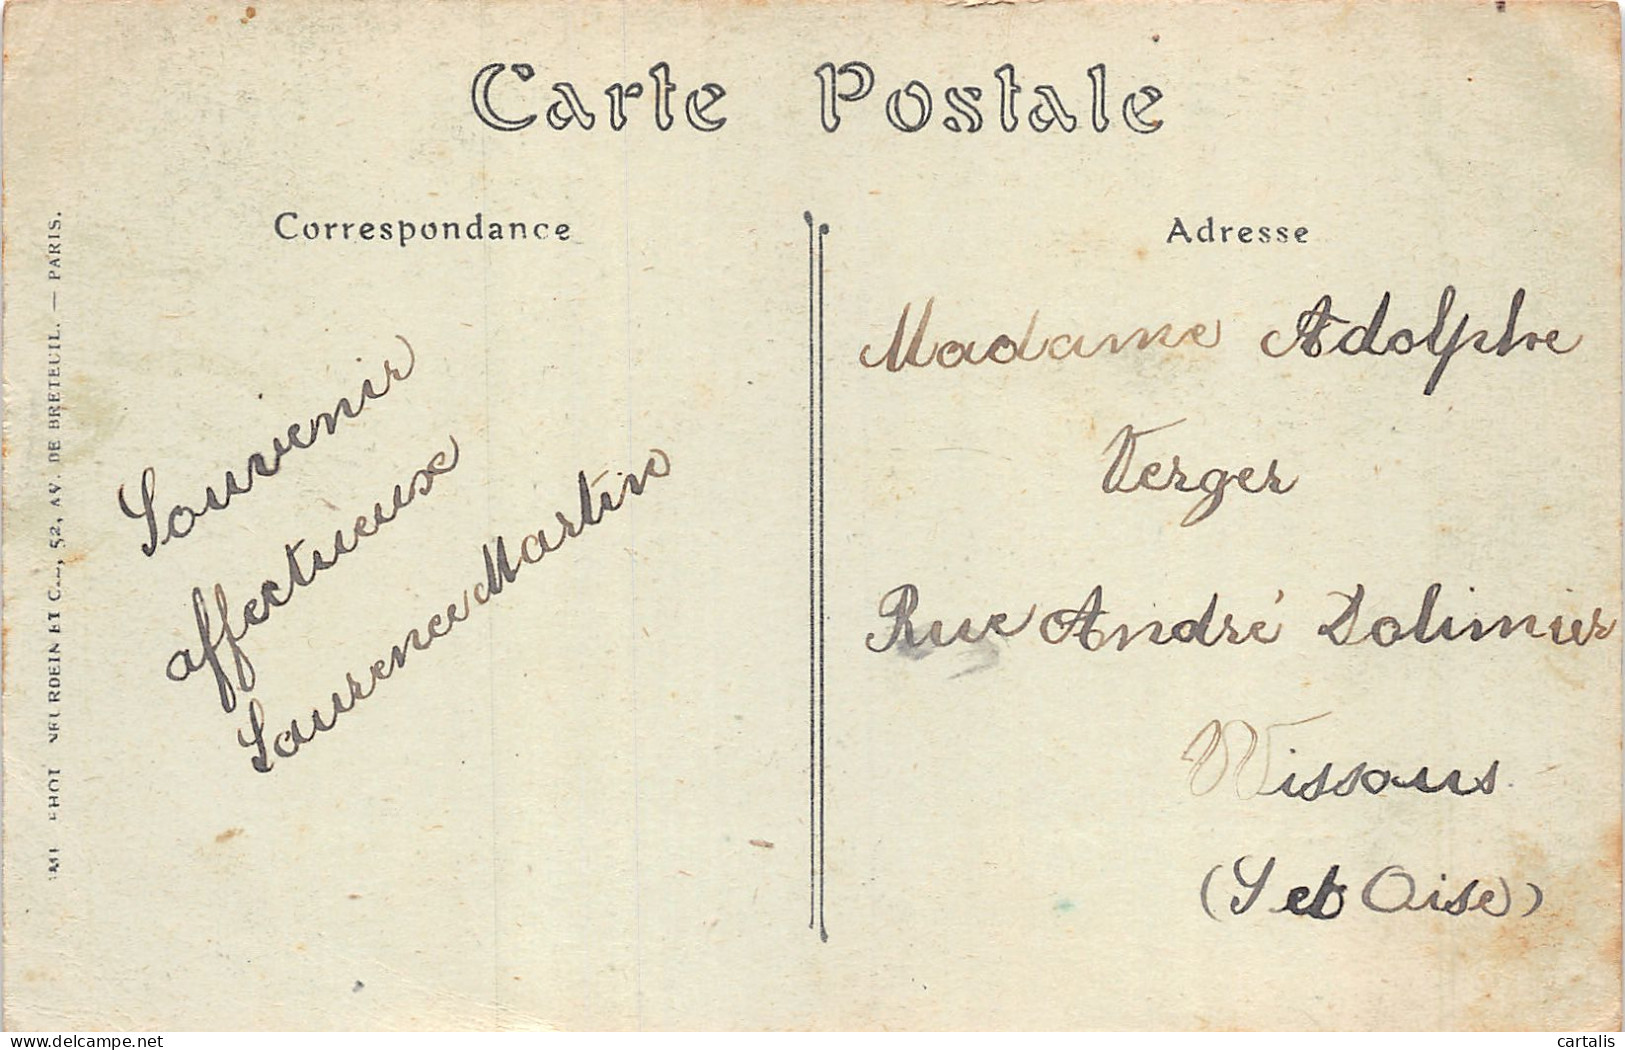 Carte Postale
Correspondance
Souvenir
affectueux
Laurence Martin
Adresse
Madame Adolphe
Verger
Rue André Dolimier
Wissous
(S et Oise)
PHOT NEURDEIN ET C, 52, AV. DE BRETEUIL. — PARIS.
delcampe.net
cartalis